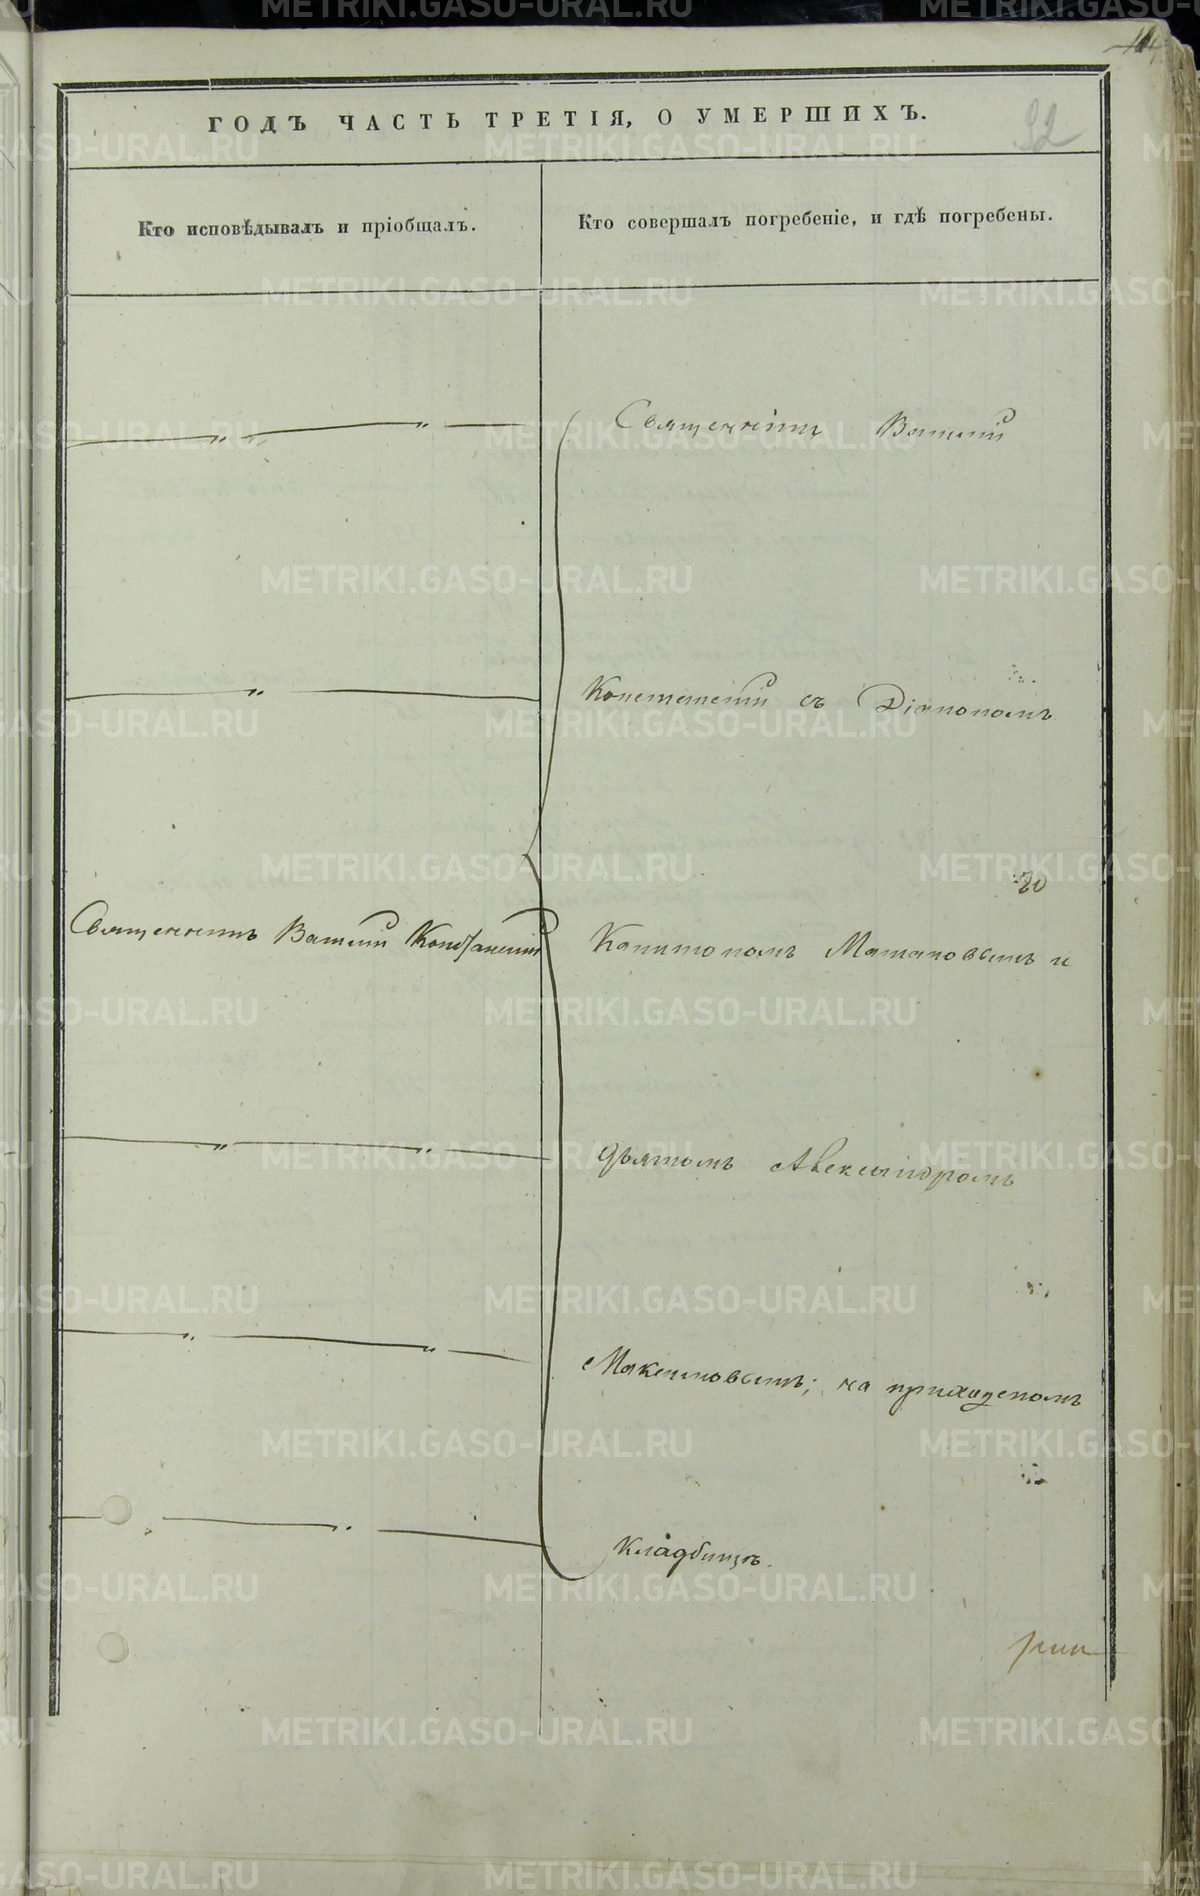 ГОДЪ ЧАСТЬ ТРЕТІЯ, О УМЕРШИХЪ.
32
Кто исповѣдывалъ и пріобщалъ.
Кто совершалъ погребеніе, и гдѣ погребены.
Священникъ Василій
Констант съ Діакономъ
Священникъ Василій
Капитономъ и
дьячкомъ Александромъ
Максимовымъ; на приходскомъ
кладбищѣ.
METRIKI.GASO-URAL.RU